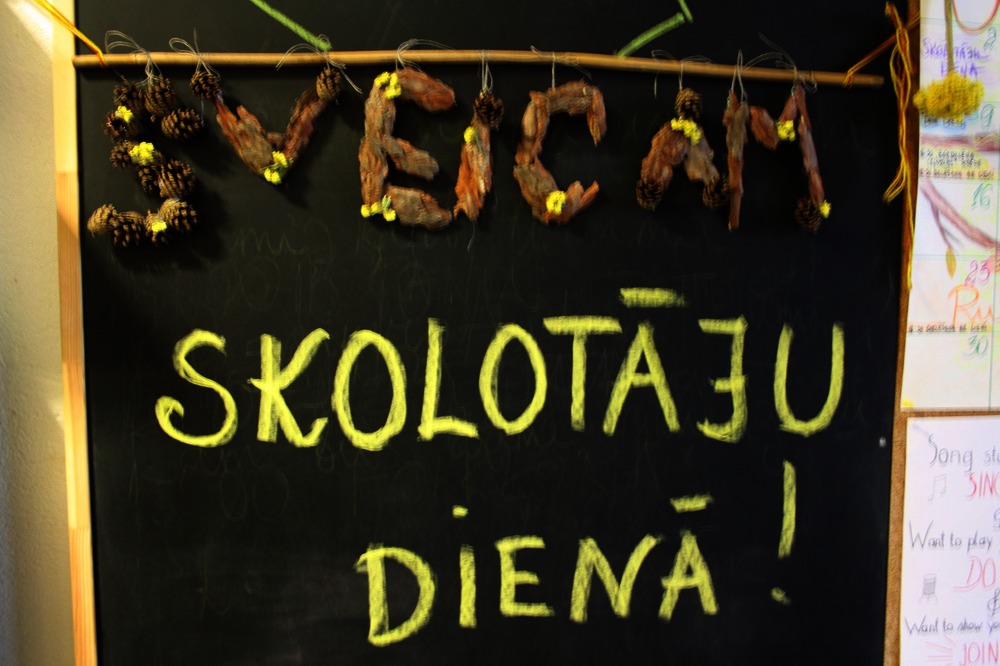 SVEICAM
SKOLOTĀJU
DIENĀ!
SKOLOTĀJU
DIENA
9
16
23
30
Song
Want to play
DO
Want to show
JOIN